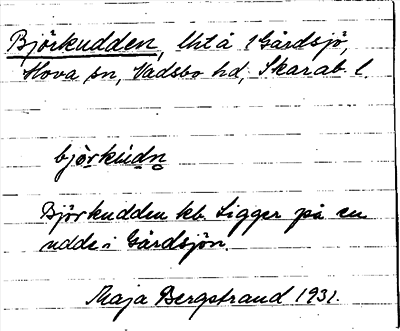 Björkudden, lht å 1 Gårdsjö,
Hova sn, Vadsbo hd, Skarab. l.
björkùdn
Björkudden kb. Ligger på en
udde i Gårdsjön.
Maja Bergstrand 1931.